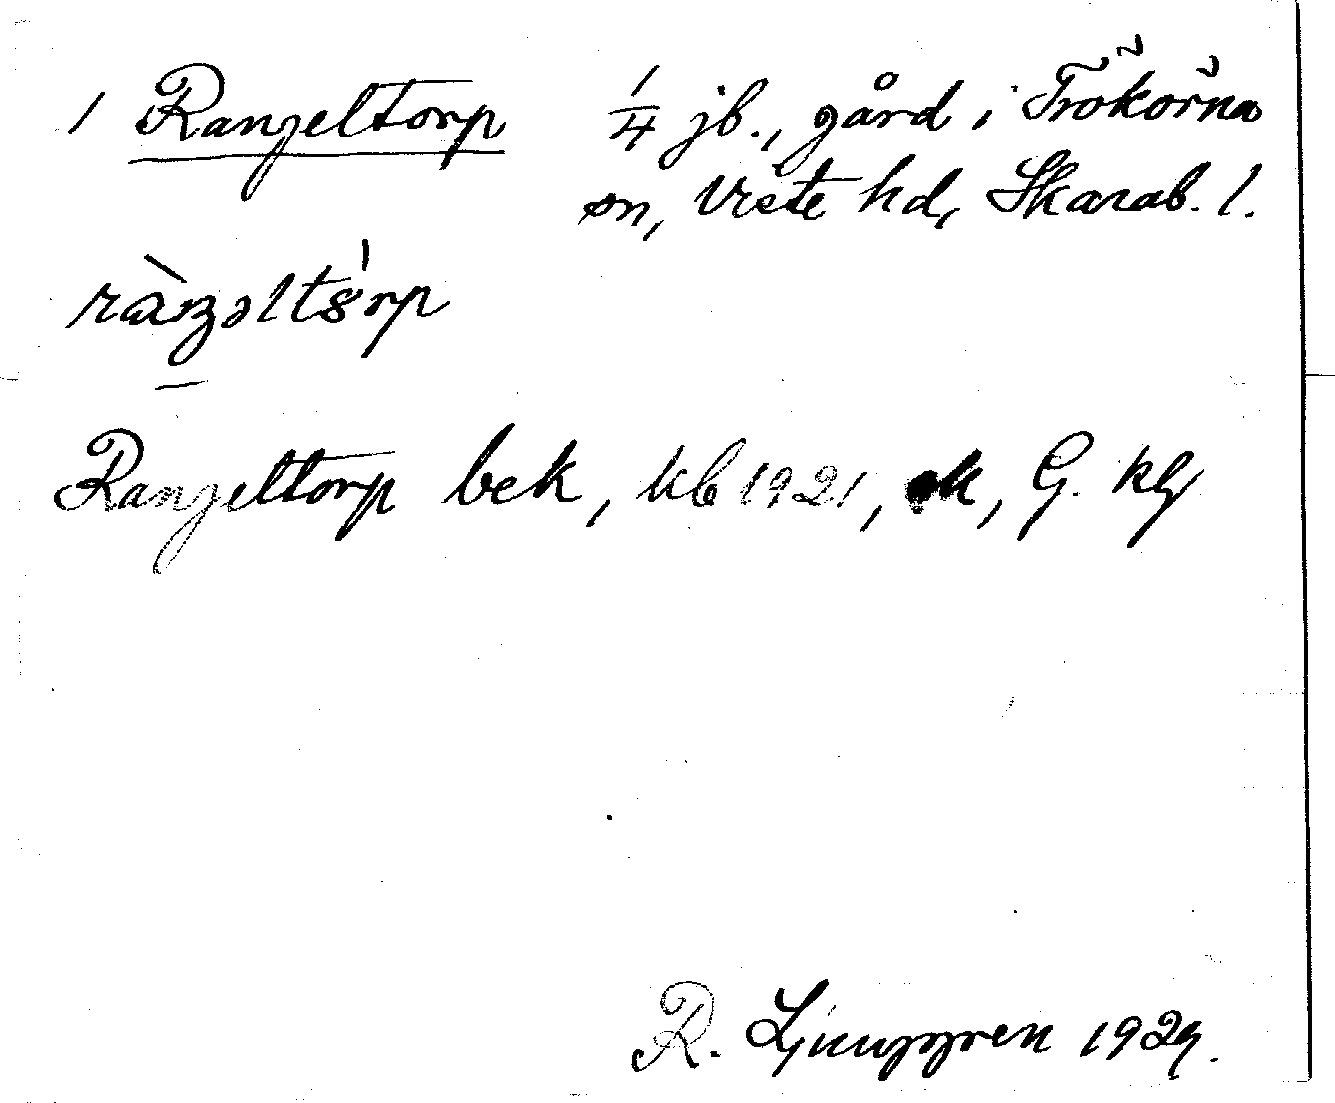 1 Rangeltorp ¼ jb., gård i Trökörna
sn, Viste hd, Skarab. l.
ràŋəlts̍rp
Rangeltorp bek, kb 1921, ek, G. kbl
R. Ljunggren 1929.